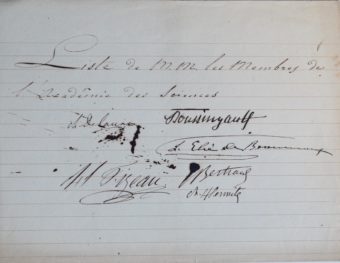 Liste de M.M. les Membres de
l'Académie des Sciences
Boussingault
L. Elie de Beaumont
J Bertrand
Ch. Hermite